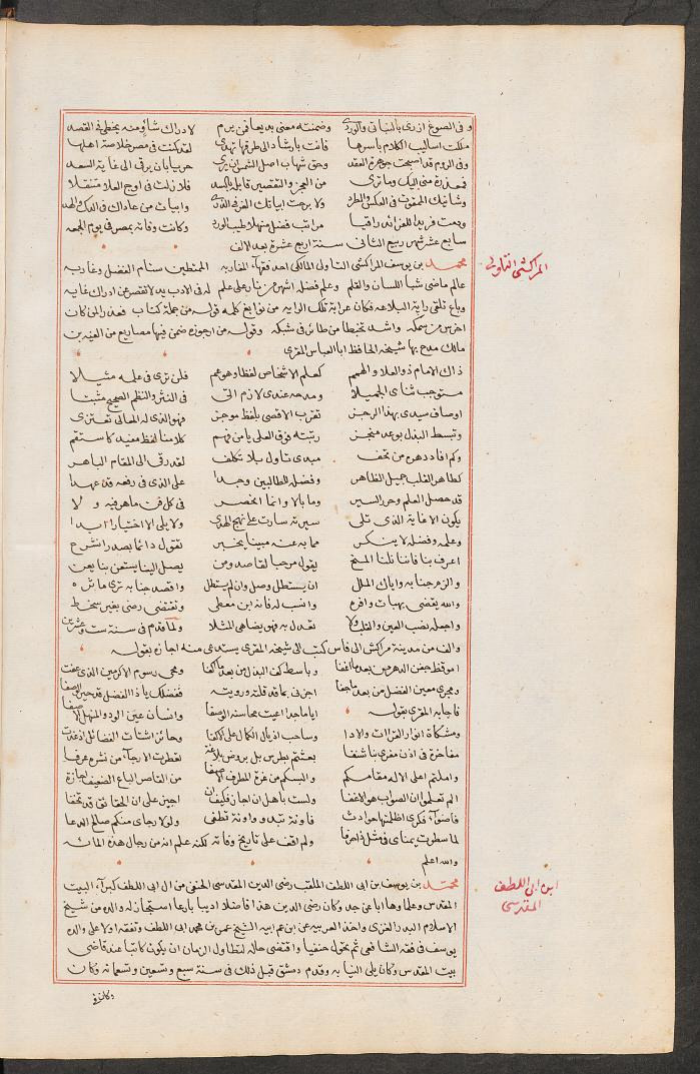 وفى الصوغ ازرى بالنباتى والوردى وضمنته معنى بديعا فمن يرم لادراك شاؤ منه يخطى فى القصد
ملكت اساليب الكلام باسرها فانت بارشاد الى طرقها تهدى لقد كنت فى مصر خلاصة اهلها
وفى الروم قد اصبحت جوهرة العقد وحق شهاب اصل الشمس ان يرى حريا بان يرقى الى غاية السعد
فمعذرة منى اليك وما ترى من العجز والتقصير قابله بالسد فلا زلت فى اوج العلا متنقلا
وشانيك الممقوت فى العكس والطرد ولا برحت ابياتك الغر فى الذرى وابيات من عاداك فى الدك والهد
ودمت فريدا للفرائد راقيا مراتب فضل منهلا طيب الورد وكانت وفاته بمصر فى يوم الجمعه
سابع عشر شهر ربيع الثانى سنة اربع عشرة بعد الالف
المراكشى التاولى
محمد بن يوسف المراكشى التاولى المالكى احد فقهاء المغاربه الممتطين سنام الفضل وغاربه
عالم ماضى شبا اللسان والقلم وعلم فضله اشهر من نار على علم له فى الادب يد لا تقصر عن ادراك غايه
وباع تلقى راية البلاغه فكان عرابة تلك الرايه من نوابغ كلمه قوله من جملة كتاب فعذرا لمن كان
اخرس من سمكه واشد تخبطا من طائر فى شبكه وقوله من ارجوزة ضمن فيها مصاريع من الفية بن
مالك مدح بها شيخه الحافظ ابا العباس المقرى
ذاك الامام ذو العلاء والهمم كعلم الاشخاص لفظا وهو عم فلن ترى فى علمه مثيلا
مستوجب ثناى الجميلا ومدحه عندى لازم اتى فى النثر والنظم الصحيح مثبتا
اوصاف سيدى بهذا الرجز تقرب الاقصى بلفظ موجز فهو الذى له المعالى تعتزى
وتبسط البذل بوعد منجز رتبته فوق العلى يا من فهم كلامنا لفظ مفيد كاستقم
وكم افاد دهره من تحف مبدى تاول بلا تكلف لقد رقى الى المقام الباهر
كطاهر القلب جميل الظاهر وفضله للطالبين وجدا على الذى فى رفعه قد عهدا
قد حصل العلم وحرر السير وما بالا وانما انحصر فى كل فن ماهر فيه ولا
يكون الا غاية الذى تلى سيرته سارت على نهج الهدى ولا يلى الا اختيارا ابدا
وعلمه وفضله لا ينكر مما به عنه مبينا يخبر تقول دائما بصدر انشرح
اعرف بنا فاننا نلنا المنح يقول مرحبا لقاصد ومن يصل الينا يستعن بنا يعن
والزم جنابه واياك الملل ان يستطل وصل وان لم يستطل واقصد جنابه ترى ماثره
والله يقضى بهبات وافره وانسب له فانه ابن معطى وتقتضى رضى بغير سخط
واجعله نصب العين والقلب ولا تعدل به فهو يضاهى المثلا ولما قدم فى سنة ست وعشرين
والف من مدينة مراكش الى فاس كتب الى شيخه المقرى يستدعى منه اجازه بقوله
اموقظ جفن الدهر من بعد ما اغفا وباسط كف البذل من بعد ما كفا ومحى رسوم الاكرمين الذى عفت
ومجرى معين الفضل من بعد ما جفا اجز فى بما قد قلته ورويته ففضلك يا ذا الفضل قد جبر الضعفا
فاجابه المقرى بقوله ايا ماجدا اعيت محاسنه الوصفا وانسان عين الود والمنهل الاصفا
ومشكاة انوار القرات والادا وساحب اذيال الكمال على الاكفا وحائز اشتات الفضائل اذ غدت
مفاخرة فى اذن مفرى بنا شنفا بعثتم بطرس بل بروض بلاغة لقطرت الارجاء من نشره عرفا
واعلنتم اعلى الاله مقامكم والبسكم من عزة المطرف الاصفا من القاصر الباع الضعيف اجازة
الم تعلموا ان الصواب هو الاعفا ولست باهل ان اجاز فكيف ان اجيز على ان الحقائق قد تخفا
فاضواء فكرى اظلمتها حوادث فاونة تبدو واونة تطفى ولولا رجاى منكم صالح الدعا
لما سطرت يمناى فى مثل ذا حرفا ولم اقف على تاريخ وفاته لكنه علم انه من رجال هذه المائه
والله اعلم
ابن ابى اللطف
المقدسى
محمد بن يوسف بن ابى اللطف الملقب رضى الدين المقدسى الحنفى من ال ابى اللطف كبراء البيت
المقدس وعلماوها ابا عن جد وكان رضى الدين هذا فاضلا اديبا بارعا استجاز له والده من شيخ
الاسلام البدر الغزى واخذ العربيه عن بن عم ابيه الشيخ عمر بن محمد ابى اللطف وتفقه اولا على والده
يوسف فى فقه الشافعى ثم تحول حنفيا واقتضى حاله لتطاول الزمان ان يكون كاتبا عند قاضى
بيت المقدس وكان يلى النيابه وقدم دمشق قبل ذلك فى سنة سبع وتسعين وتسعمائه وكان
وكان فى